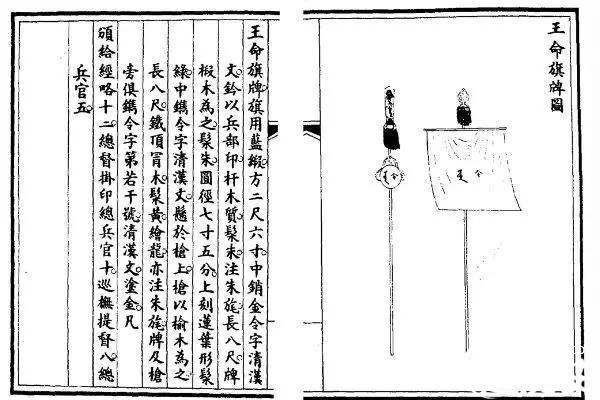 王命旗牌圖
令
王命旗牌旗用藍緞方二尺六寸中銷金令字清漢
文鈐以兵部印杆木質髤朱注朱旄長八尺牌
椴木為之髤朱圓徑七寸五分上刻蓮葉形髤
綠中鐫令字清漢文懸於槍上槍以榆木為之
長八尺鐵頂冒木髤黃繪龍亦注朱旄牌及槍
旁俱鐫令字第若干號清漢文塗金凡
頒給經略十二總督掛印總兵官十巡撫提督八總
兵官五